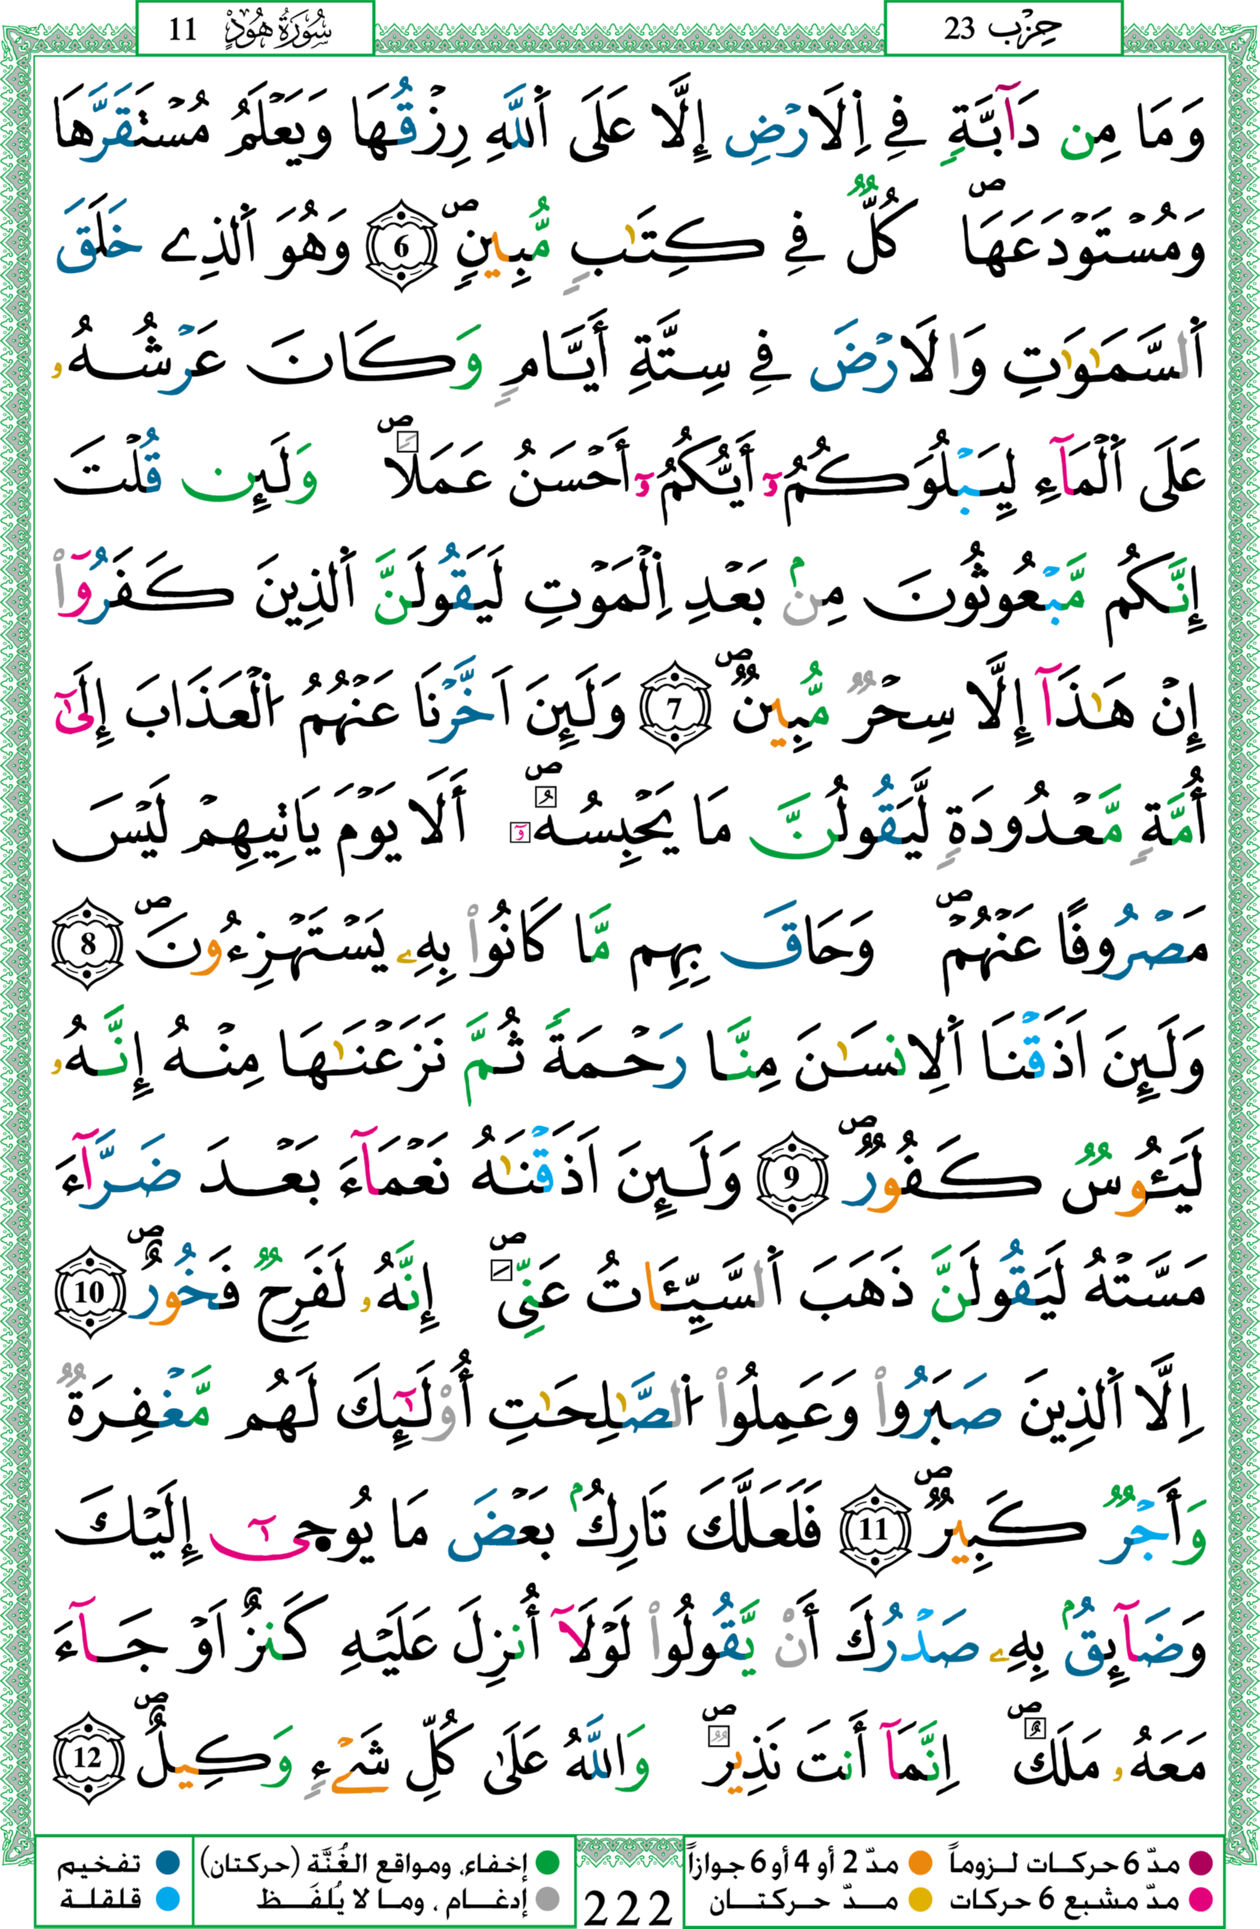 حِزْب 23
سُورَةُ هُودٍ 11
وَمَا مِن دَآبَّةٖ فِے اِ۬لَارْضِ إِلَّا عَلَى اَ۬للَّهِ رِزْقُهَا وَيَعْلَمُ مُسْتَقَرَّهَا
وَمُسْتَوْدَعَهَاۖ كُلّٞ فِے كِتَٰبٖ مُّبِينٖۖ 6 وَهُوَ اَ۬لذِے خَلَقَ
اَ۬لسَّمَٰوَٰتِ وَالَارْضَ فِے سِتَّةِ أَيَّامٖ وَكَانَ عَرْشُهُۥ
عَلَى اَ۬لْمَآءِ لِيَبْلُوَكُمُۥٓ أَيُّكُمُۥٓ أَحْسَنُ عَمَلاٗۖ وَلَئِن قُلْتَ
إِنَّكُم مَّبْعُوثُونَ مِنۢ بَعْدِ اِ۬لْمَوْتِ لَيَقُولَنَّ اَ۬لذِينَ كَفَرُوٓاْ
إِنْ هَٰذَآ إِلَّا سِحْرٞ مُّبِينٞۖ 7 وَلَئِنَ اَخَّرْنَا عَنْهُمُ اُ۬لْعَذَابَ إِلَىٰٓ
أُمَّةٖ مَّعْدُودَةٖ لَّيَقُولُنَّ مَا يَحْبِسُهُۥٓۖ أَلَا يَوْمَ يَاتِيهِمْ لَيْسَ
مَصْرُوفًا عَنْهُمْۖ وَحَاقَ بِهِم مَّا كَانُواْ بِهِۦ يَسْتَهْزِءُونَۖ 8
وَلَئِنَ اَذَقْنَا اَ۬لِانسَٰنَ مِنَّا رَحْمَةٗ ثُمَّ نَزَعْنَٰهَا مِنْهُ إِنَّهُۥ
لَيَـُٔوسٞ كَفُورٞۖ 9 وَلَئِنَ اَذَقْنَٰهُ نَعْمَآءَ بَعْدَ ضَرَّآءَ
مَسَّتْهُ لَيَقُولَنَّ ذَهَبَ اَ۬لسَّيِّـَٔاتُ عَنِّىۖ إِنَّهُۥ لَفَرِحٞ فَخُورٌۖ 10
اِلَّا اَ۬لذِينَ صَبَرُواْ وَعَمِلُواْ اُ۬لصَّٰلِحَٰتِ أُوْلَٰٓئِكَ لَهُم مَّغْفِرَةٞ
وَأَجْرٞ كَبِيرٞۖ 11 فَلَعَلَّكَ تَارِكُۢ بَعْضَ مَا يُوح۪ىٰٓ إِلَيْكَ
وَضَآئِقُۢ بِهِۦ صَدْرُكَ أَنْ يَّقُولُواْ لَوْلَآ أُنزِلَ عَلَيْهِ كَنزٌ اَوْ جَآءَ
مَعَهُۥ مَلَكٌۖ اِنَّمَآ أَنتَ نَذِيرٞۖ وَاللَّهُ عَلَىٰ كُلِّ شَےْءٖ وَكِيلٌۖ 12
مدّ 6 حركات لـزوماً
مدّ 2 أو 4 أو 6 جوازاً
إخفاء، ومواقع الغُنَّة (حركتان)
تفخيم
مدّ مشبع 6 حركات
مـدّ حركتـان
222
إدغام ، وما لا يُلفَـظ
قلقلة